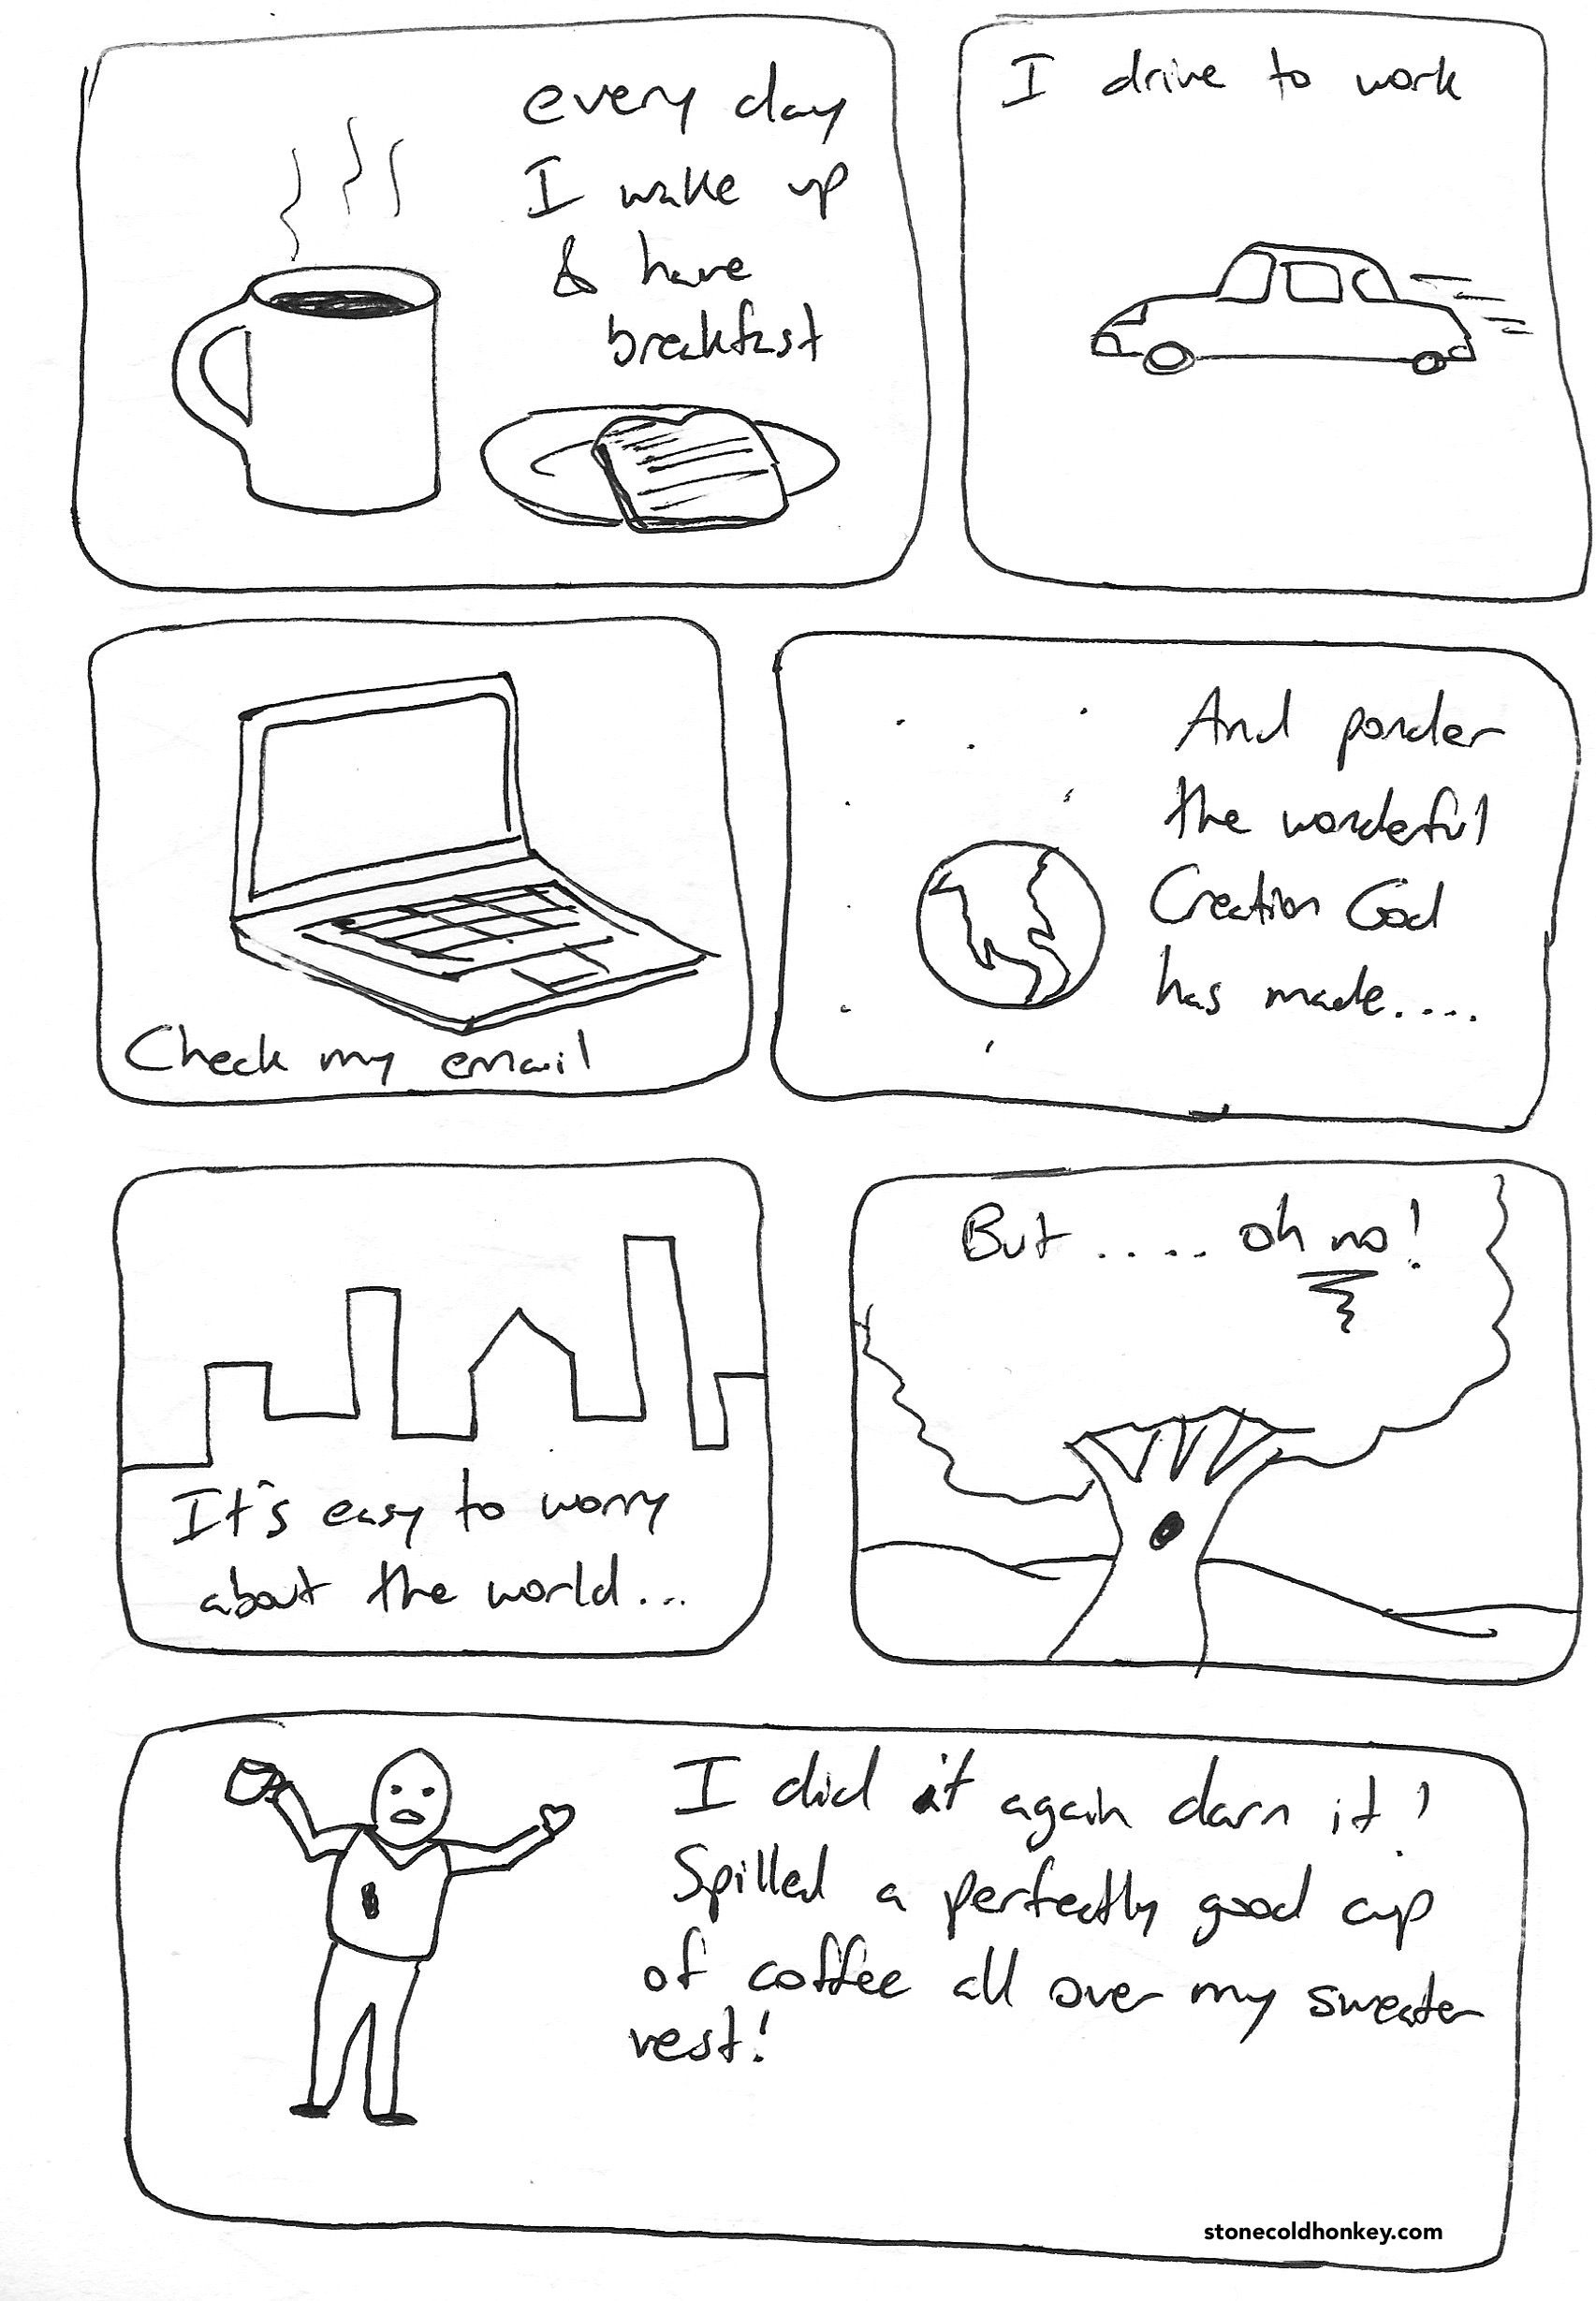 every day
I wake up
& have
breakfast
I drive to work
Check my email
And ponder
the wonderful
Creation God
has made....
It's easy to worry
about the world...
But ..... oh no!
I did it again darn it!
Spilled a perfectly good cup
of coffee all over my sweater
vest!
stonecoldhonkey.com